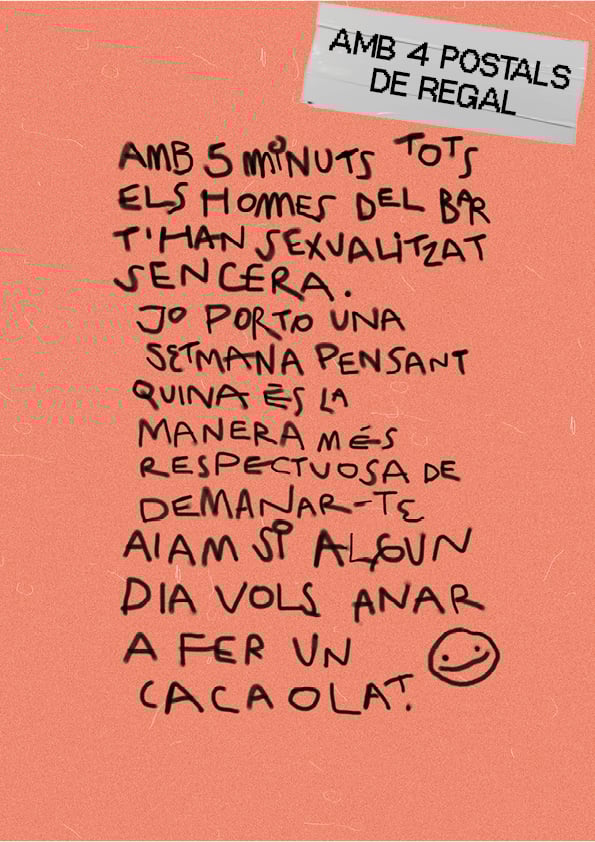 AMB 4 POSTALS
DE REGAL
AMB 5 MINUTS TOTS
ELS HOMES DEL BAR
T'HAN SEXUALITZAT
SENCERA.
JO PORTO UNA
SETMANA PENSANT
QUINA ÉS LA
MANERA MÉS
RESPECTUOSA DE
DEMANAR-TE
AIAM SI ALGUN
DIA VOLS ANAR
A FER UN
CACAOLAT.